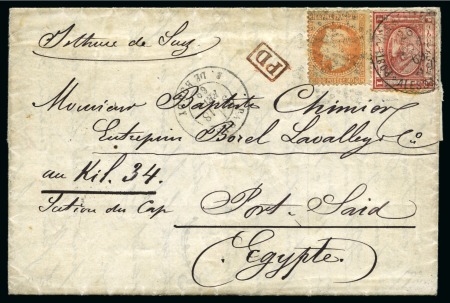 Isthme de Suez
PD
Monsieur Baptiste Chimier
Entreprise Borel Lavalley & Co
au Kil. 34.
Section du Cap
Port-Said
Égypte